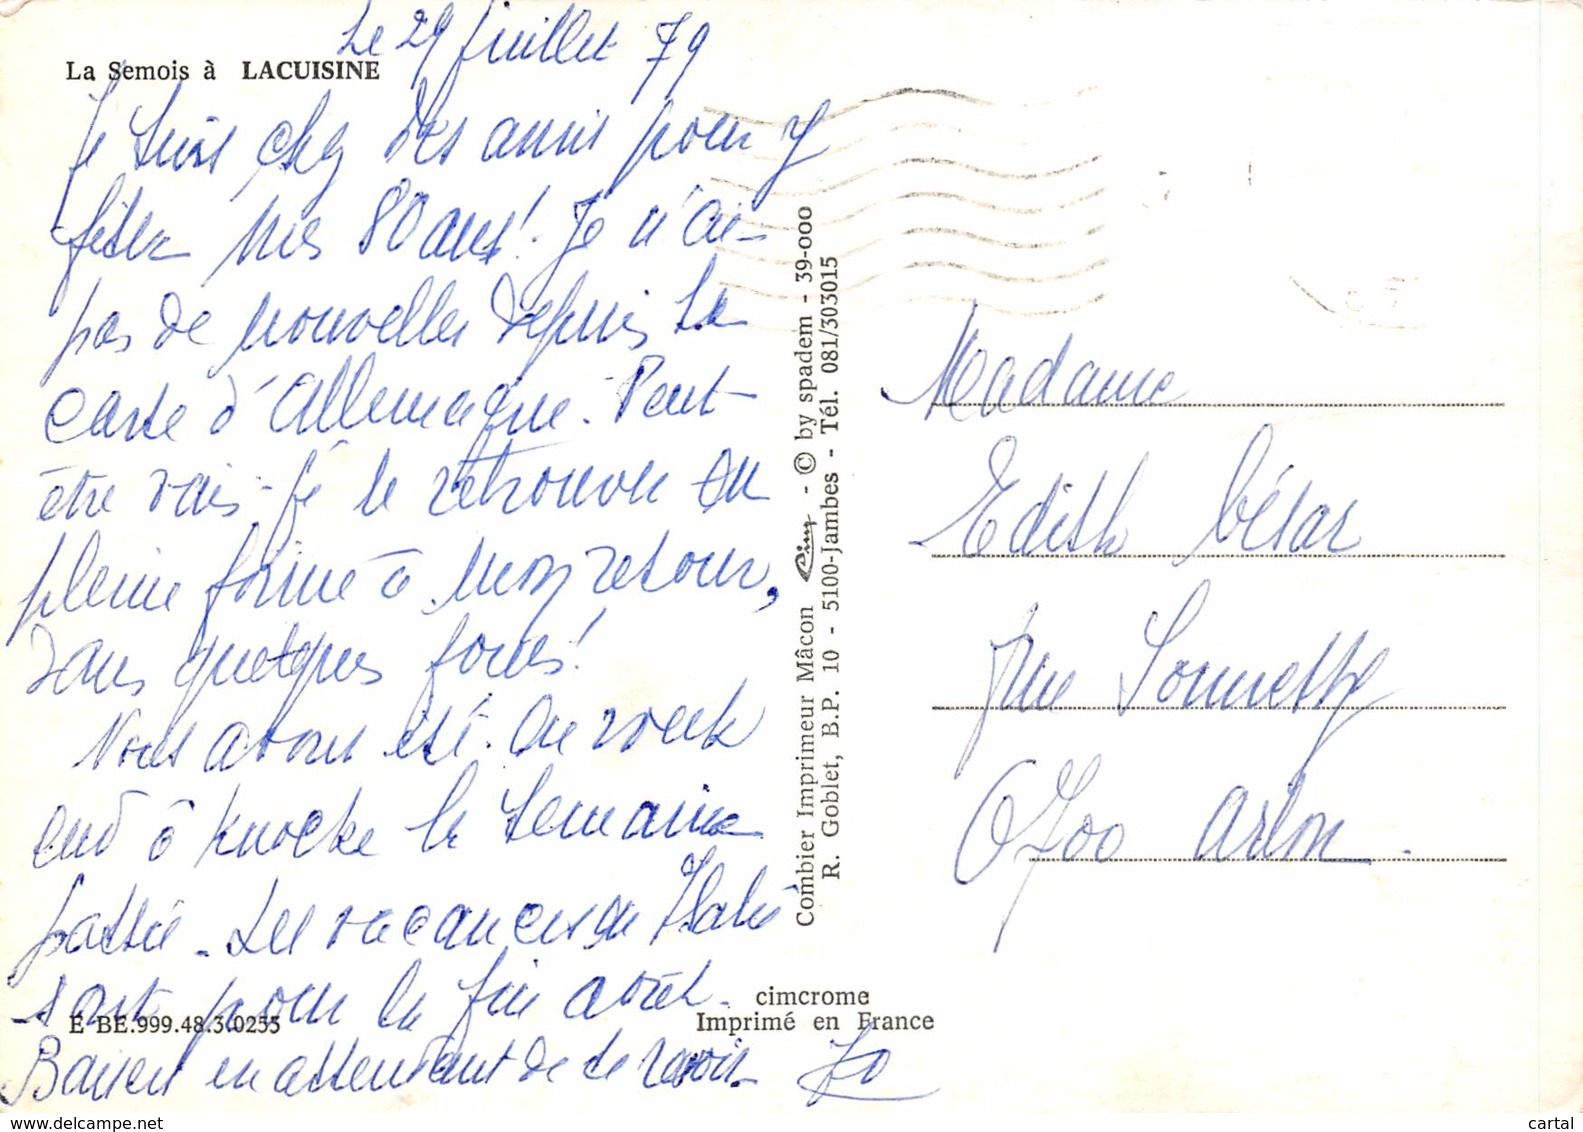 Le 29 juillet 79
La Semois à LACUISINE
Je suis chez des amis pour y
fêter mes 80 ans! Je n'ai
pas de nouvelles depuis ta
carte d'Allemagne. Peut
être vais-je te retrouver en
pleine forme à mon retour,
dans quelques jours!
Nous avons été en week
end à Knocke la semaine
passée. Les vacances en Italie
sont pour la fin août.
E BE.999.48.3.0255
Baisers en attendant de te revoir. Jo
cimcrome
Imprimé en France
Combier Imprimeur Mâcon Cim - © by spadem - 39-000
R. Goblet, B.P. 10 - 5100-Jambes - Tél. 081/303015
Madame
Edith César
rue Sonnetty
6700 Arlon.
www.delcampe.net
cartal